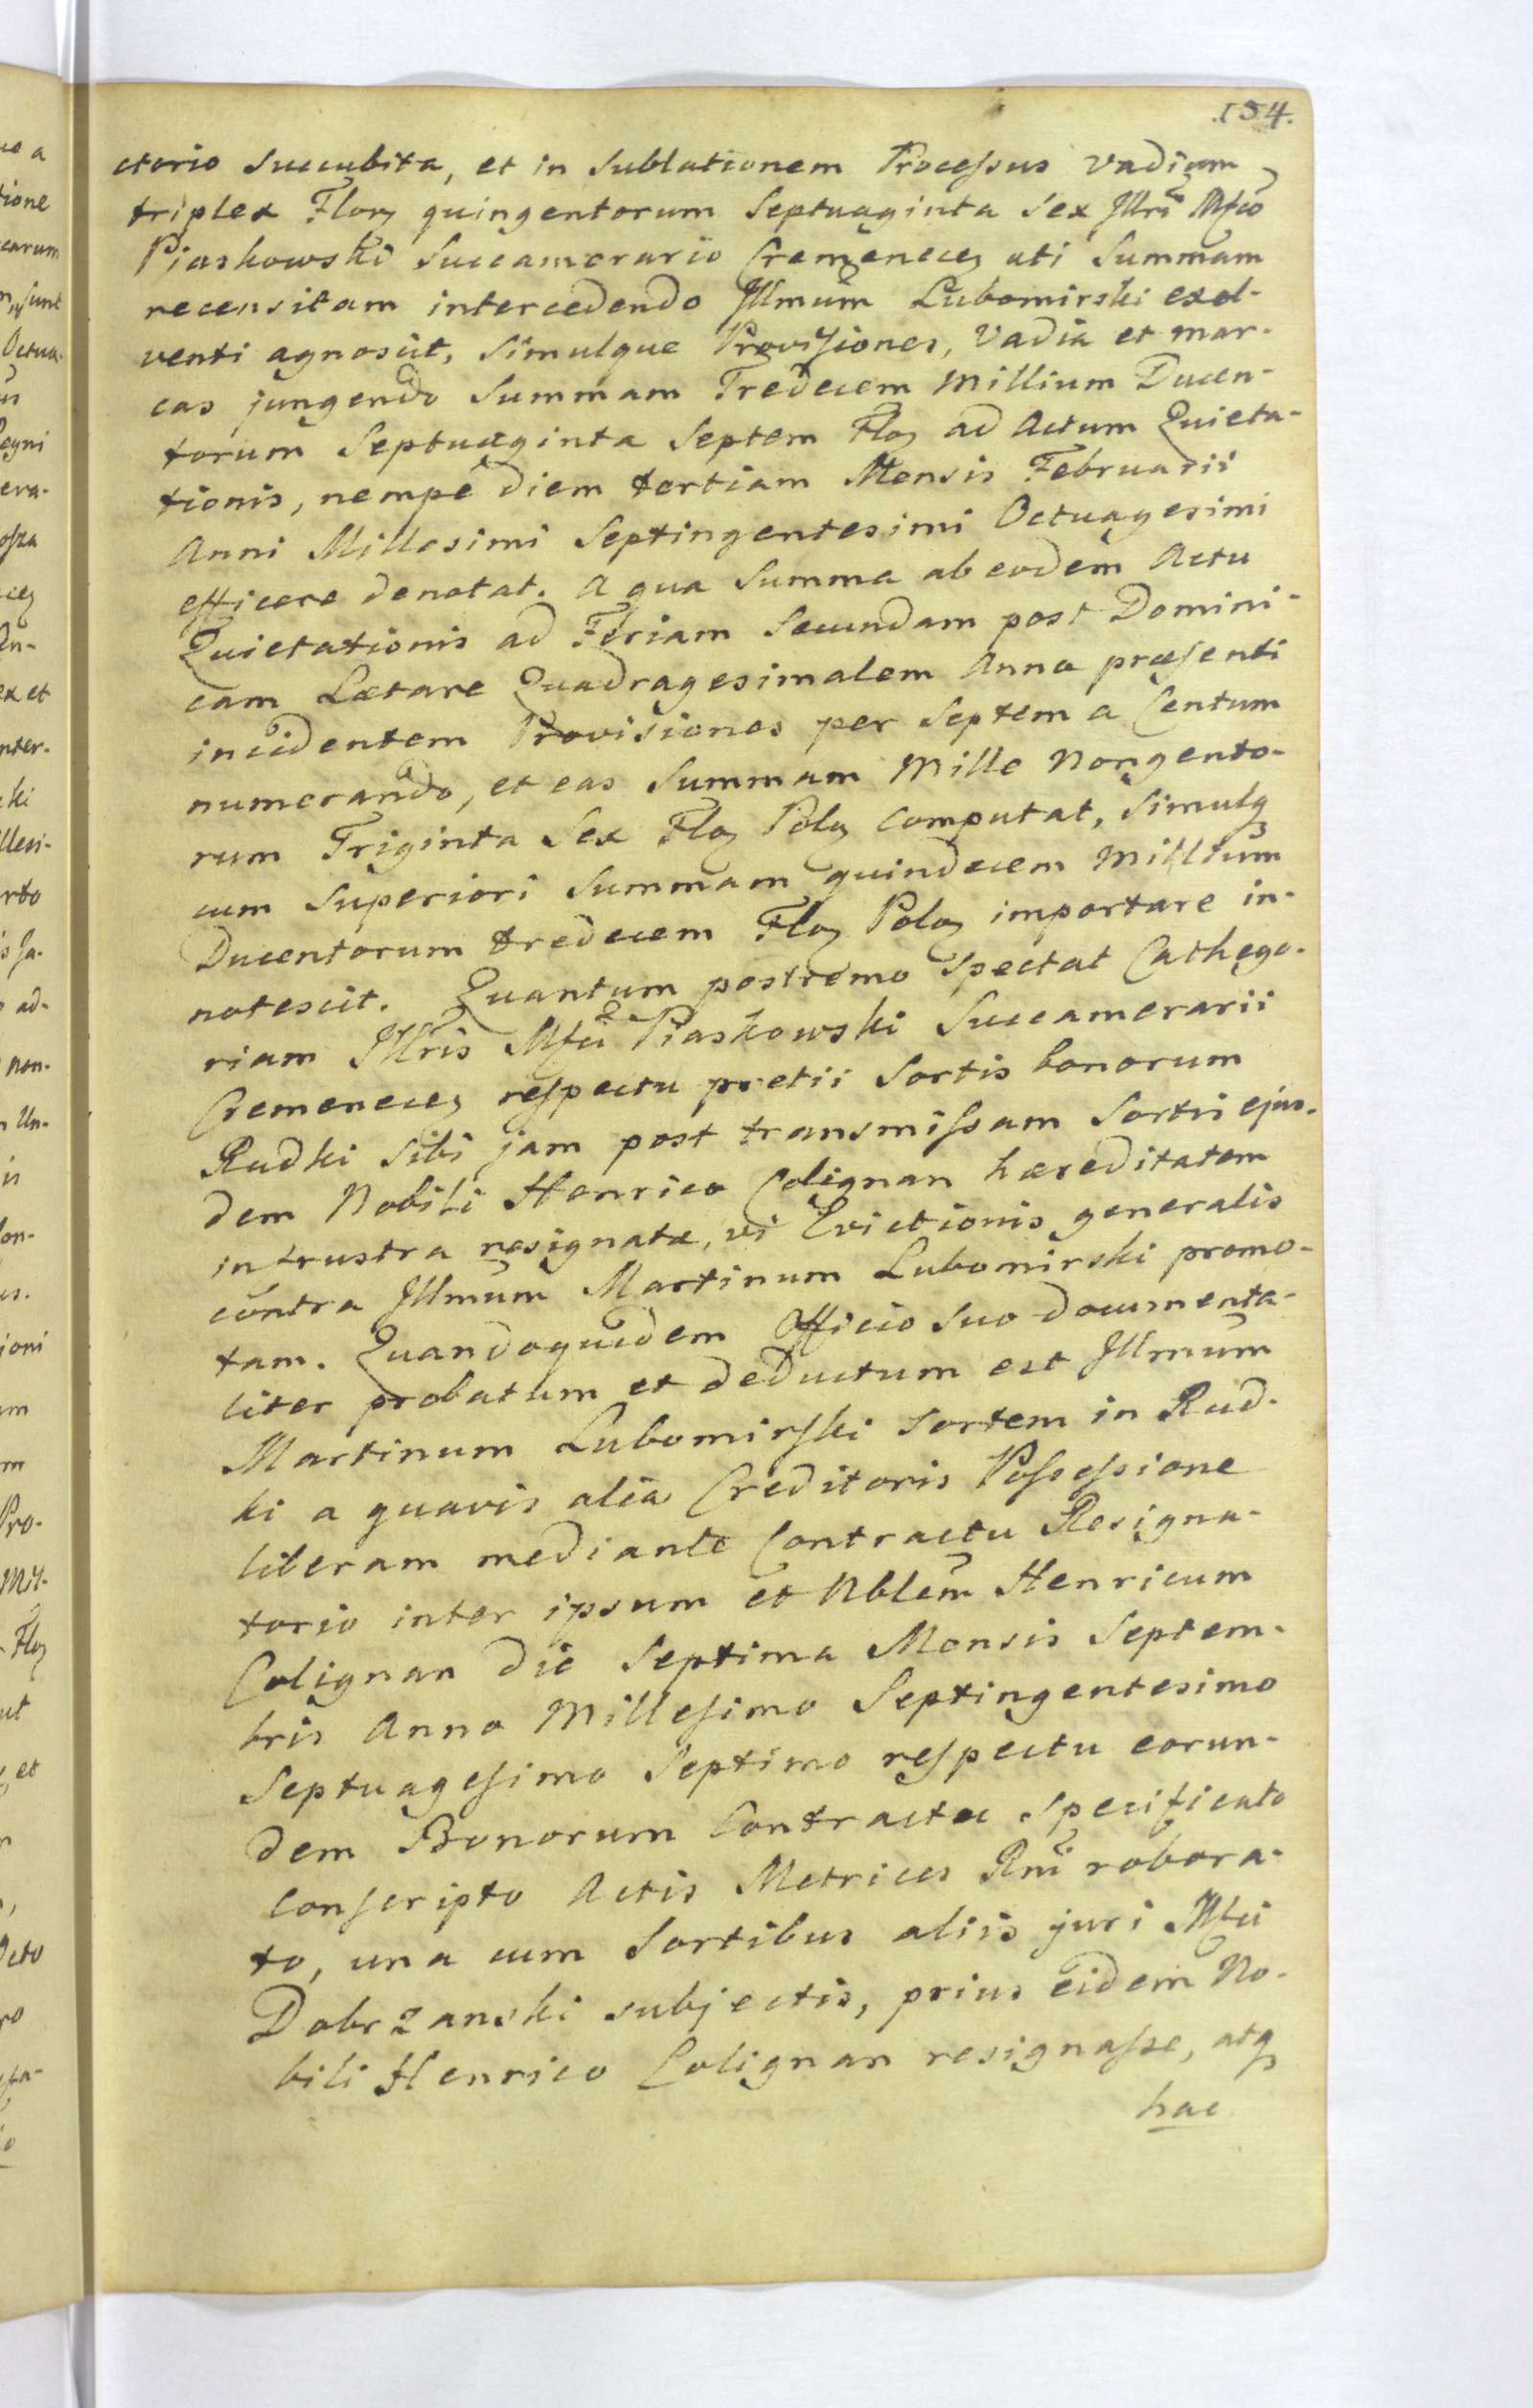 .154.
ctorio Succubita, et in Sublationem Processus Vadium
triplex Flor quingentorum Septuaginta Sex Illri Mfco
Piaskowski Succamerario Cremenecen uti Summam
recensitam intercedendo Illmum Lubomirski exol-
venti agnoscit, Simulque Provisiones, Vadia et mar-
cas jungendo Summam Tredecem Millium Ducen-
torum Septuaginta Septem Flo ad Actum Quieta-
tionis, nempe diem tertiam Mensis Februarii
Anni Millesimi Septingentesimi Octuagesimi
efficere denotat. A qua Summa ab eodem Actu
Quietationis ad Feriam Secundam post Domini-
cam Lætare Quadragesimalem Anno præsenti
incidentem Provisiones per Septem a Centum
numerando, et eas Summam Mille Nongento-
rum Triginta Sex Flo Polo computat, Simulq
cum Superiori Summam quindecem Millium
Ducentorum tredecem Flo Polo importare in-
notescit. Quantum postremo Spectat Cathego-
riam Illris Mfci Piaskowski Succamerarii
Cremenecen respectu pretii Sortis bonorum
Rudki Sibi jam post transmissam Sortis ejus-
dem Nobili Henrico Colignan hæreditatem
infrustra resignatæ, vi Evictionis generalis
contra Illmum Martinum Lubomirski promo-
tam. Quandoquidem Officio Suo documenta-
liter probatum et deductum est Illmum
Martinum Lubomirski Sortem in Rud-
ki a quavis alia Creditoris Possessione
liberam mediante Contractu Resigna-
torio inter ipsum et Nblem Henricum
Colignan die Septima Mensis Septem-
bris Anno Millesimo Septingentesimo
Septuagesimo Septimo respectu eorun-
dem Bonorum Contractu Specificato
conscripto Actis Metrices Rni robora-
to, una cum Sortibus aliis juri Mfci
Dobrzanski subjectis, prius eidem No-
bili Henrico Colignan resignasse, atq
hac